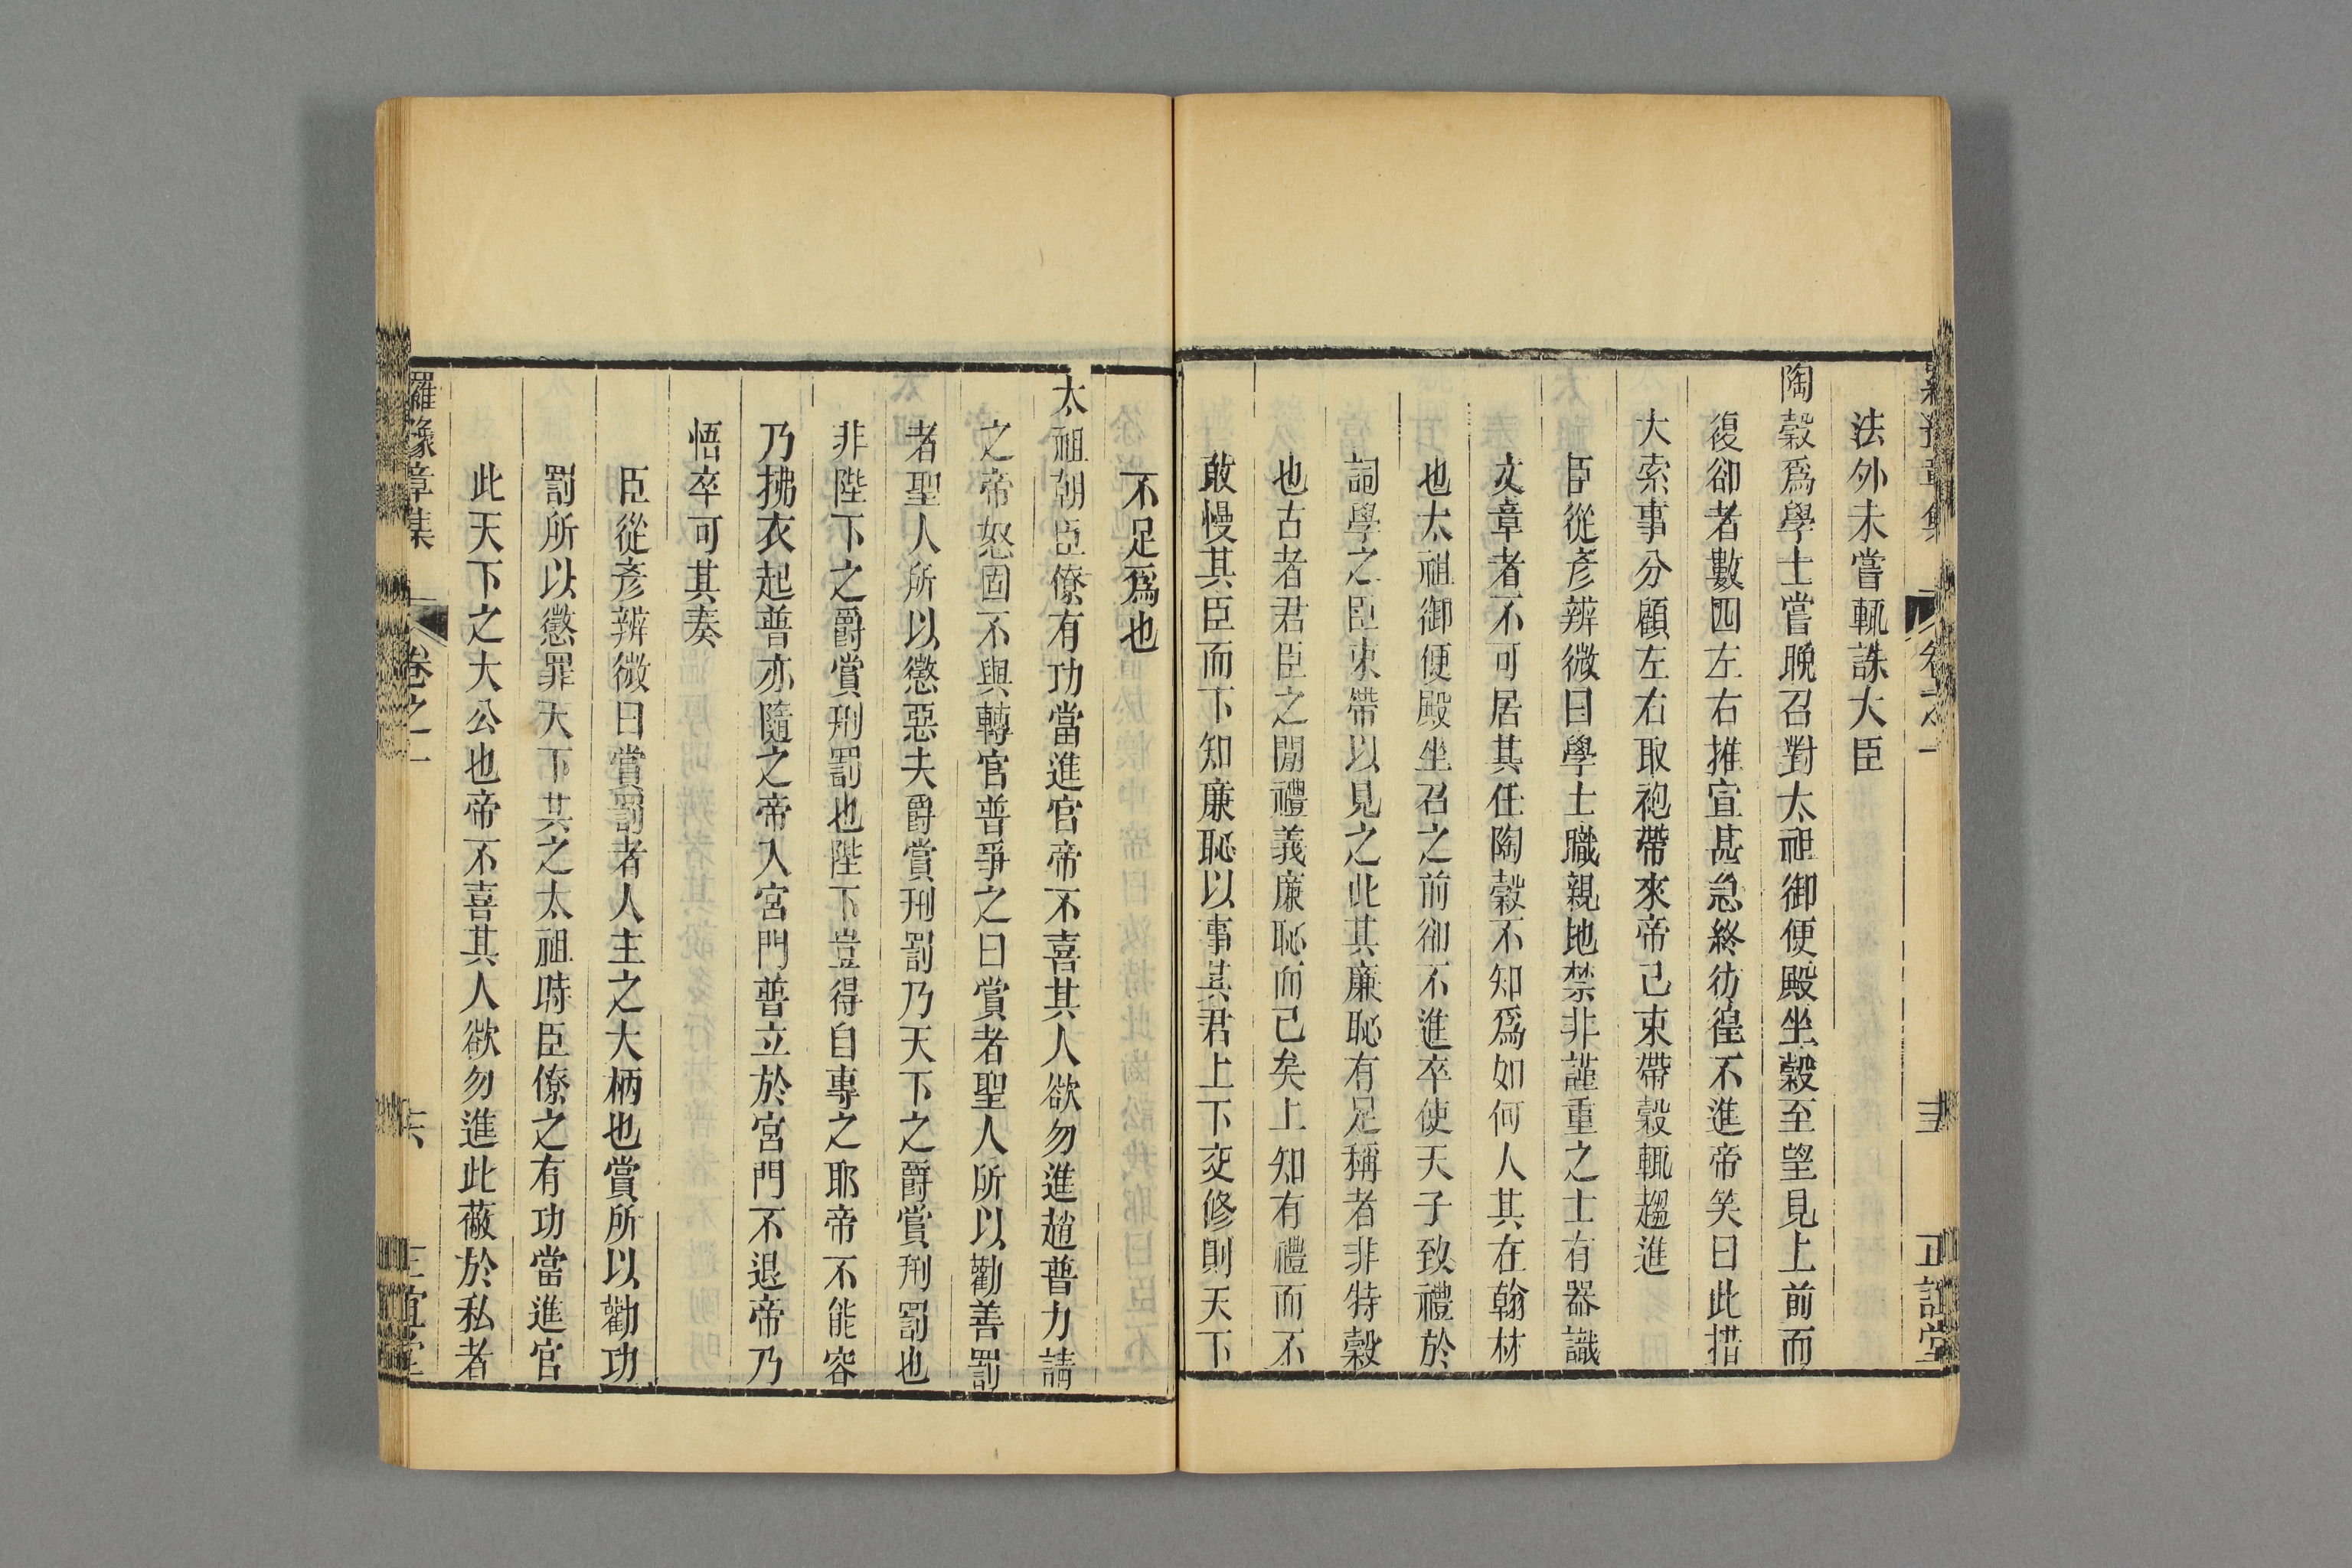 法外未嘗輒誅大臣
陶穀爲學士嘗晚召對太祖御便殿坐穀至望見上前而
復卻者數四左右推宣甚急終彷徨不進帝笑曰此措
大索事分顧左右取袍帶來帝已束帶穀輒趨進
臣從彥辨微曰學士職親地禁非謹重之士有器識
文章者不可居其任陶穀不知爲如何人其在翰林
也太祖御便殿坐召之前卻不進卒使天子致禮於
詞學之臣束帶以見之此其廉恥有足稱者非特穀
也古者君臣之閒禮義廉恥而已矣上知有禮而不
敢慢其臣而下知廉恥以事其君上下交修則天下
不足爲也
太祖朝臣僚有功當進官帝不喜其人欲勿進趙普力請
之帝怒固不與轉官普爭之曰賞者聖人所以勸善罰
者聖人所以懲惡夫爵賞刑罰乃天下之爵賞刑罰也
非陛下之爵賞刑罰也陛下豈得自專之耶帝不能容
乃拂衣起普亦隨之帝入宮門普立於宮門不退帝乃
悟卒可其奏
臣從彥辨微曰賞罰者人主之大柄也賞所以勸功
罰所以懲罪天下共之太祖時臣僚之有功當進官
此天下之大公也帝不喜其人欲勿進此蔽於私者
羅豫章集 卷之一 六 正誼堂